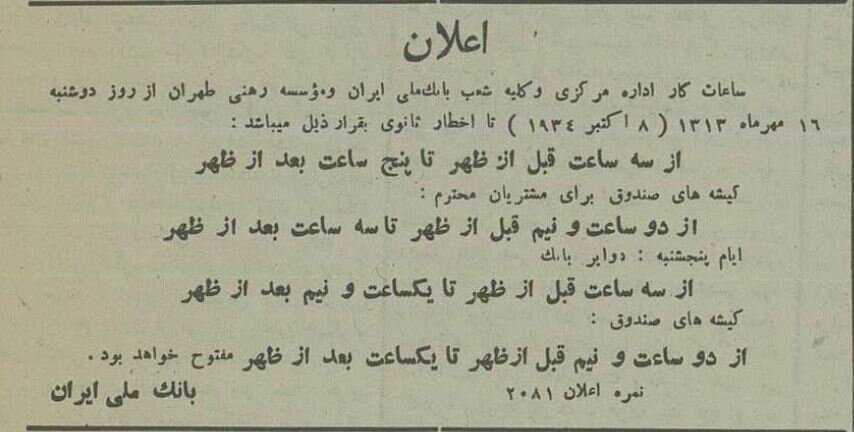 اعلان
ساعات کار اداره مرکزی وکلیه شعب بانك‌ملی ایران ومؤسسه رهنی طهران از روز دوشنبه
۱۶ مهرماه ۱۳۱۳ ( ۸ اکتبر ۱۹۳٤ ) تا اخطار ثانوی بقرار ذیل میباشد :
از سه ساعت قبل از ظهر تا پنج ساعت بعد از ظهر
کیشه های صندوق برای مشتریان محترم :
از دو ساعت و نیم قبل از ظهر تا سه ساعت بعد از ظهر
ایام پنجشنبه : دوایر بانك
از سه ساعت قبل از ظهر تا یکساعت و نیم بعد از ظهر
کیشه های صندوق :
از دو ساعت و نیم قبل ازظهر تا یکساعت بعد از ظهر مفتوح خواهد بود .
نمره اعلان ۲۰۸۱ بانك ملی ایران